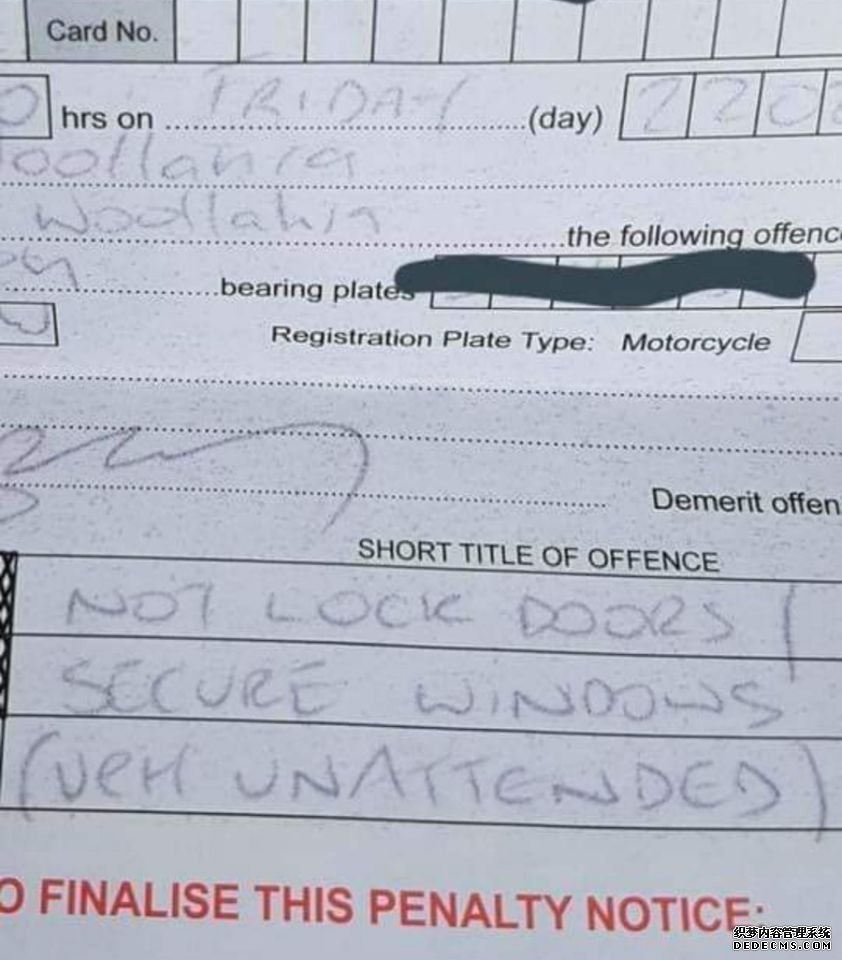 Card No.
hrs on FRIDAY (day) 220
Woollahra
the following offenc
bearing plates
Registration Plate Type: Motorcycle
Demerit offen
SHORT TITLE OF OFFENCE
NOT LOCK DOORS /
SECURE WINDOWS
(VEH UNATTENDED)
O FINALISE THIS PENALTY NOTICE:
织梦内容管理系统
DEDECMS.COM